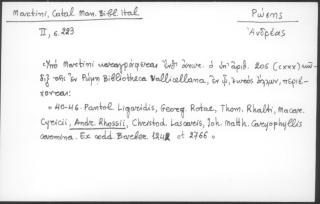 Martini, Catal. Man. Bibl. Ital.
Ρώσης
II, σ. 223
Ἀνδρέας
«Ὑπὸ Martini καταγράφεται ὁ ὑπ' ἀριθ. 205 (CXXX)
τῆς ἐν Ρώμῃ Bibliotheca Vallicellana, ἐν ᾧ, ἐκτὸς ἄλλων, περιέ-
χονται:
« 40-46. Pantol. Ligaridis, Georg. Rotae, Thom. Rhalti, Macar.
Cyricii, Andr. Rhossii, Christod. Lascareis, Joh. Matth. Caryophyllis
carmina. Ex codd. Barber. 124 et 2766 »